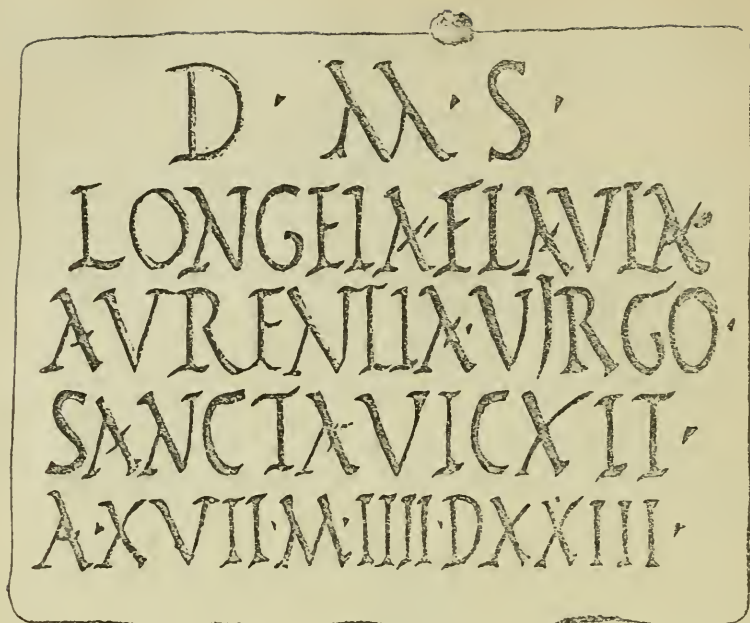 D · M · S ·
LONGEIA·FLAVIA·
AVRENTIIA·VIRGO·
SANCTA VICXIT·
A·XVII·M·IIII·DXXIII·